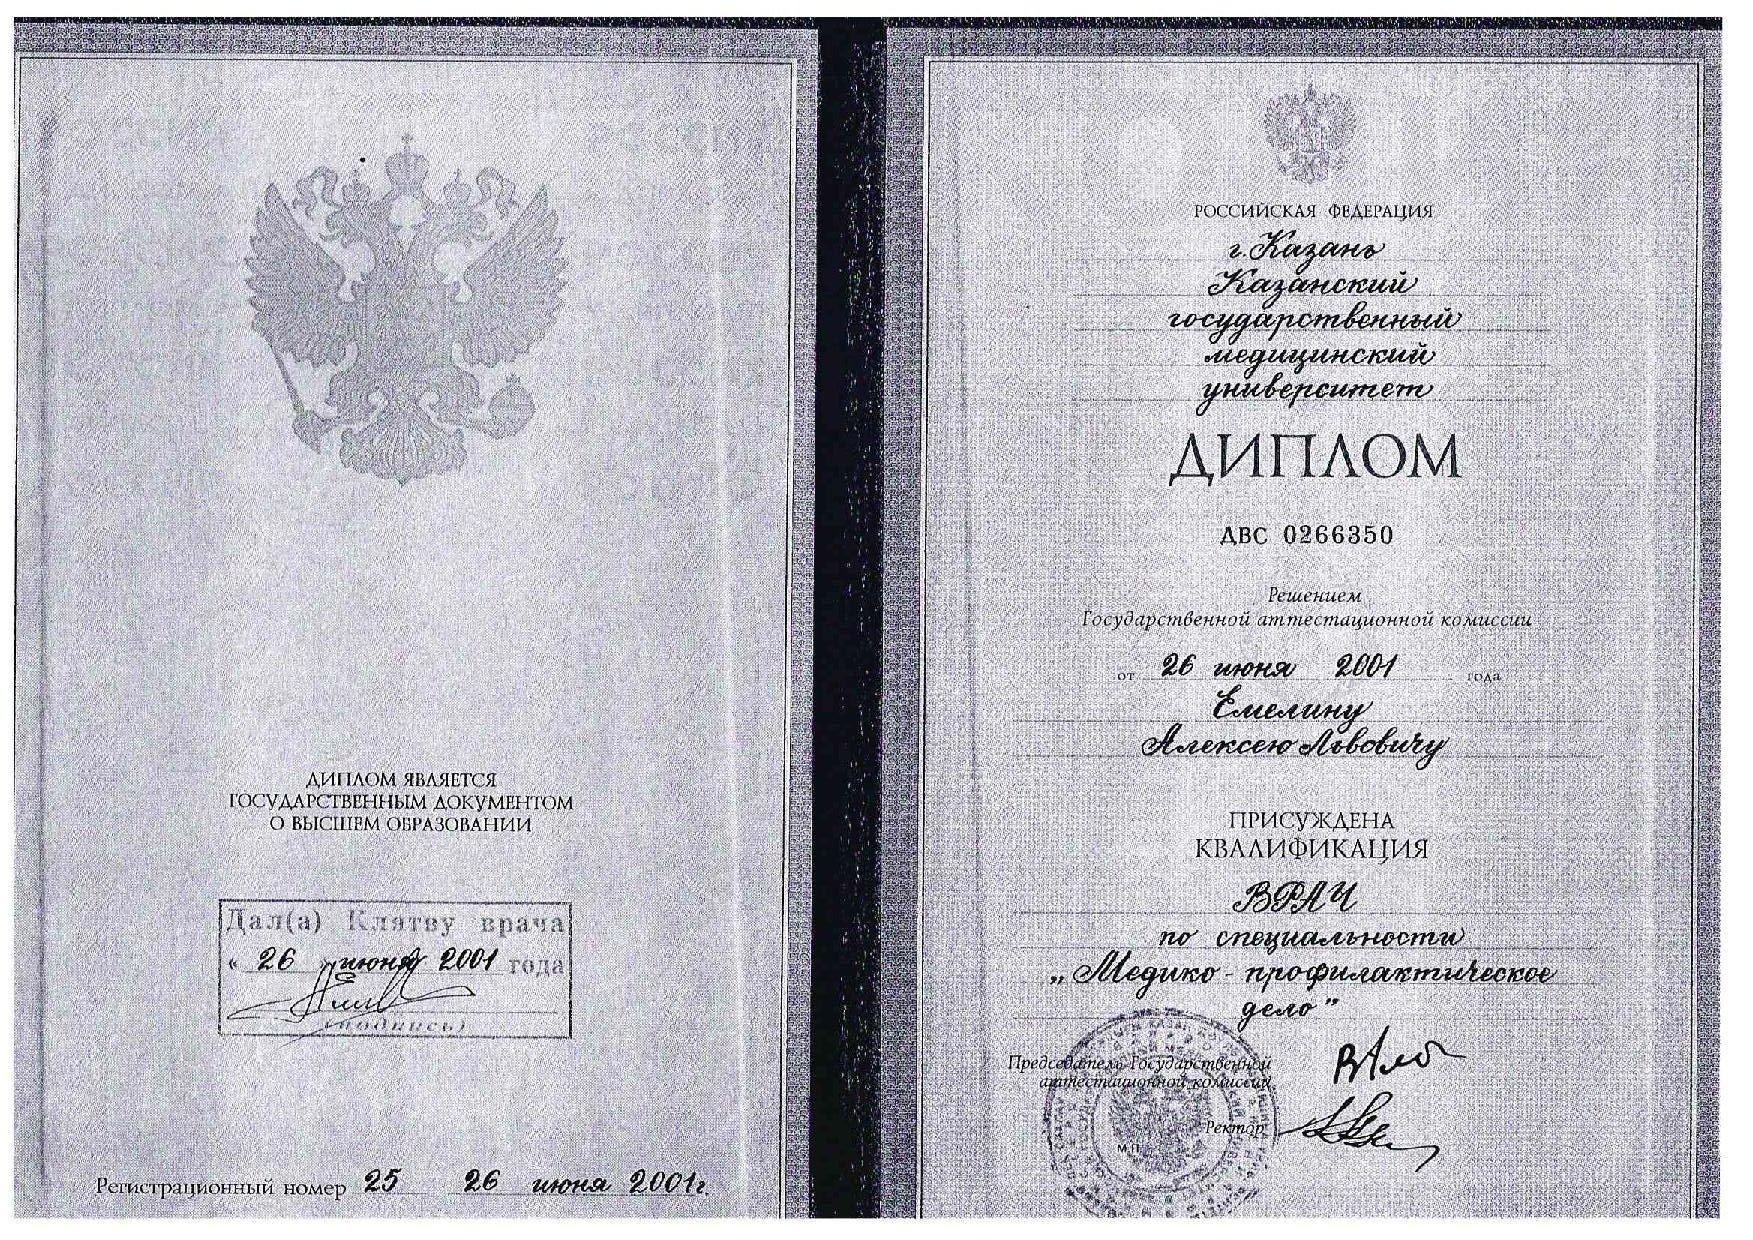 ДИПЛОМ ЯВЛЯЕТСЯ
ГОСУДАРСТВЕННЫМ ДОКУМЕНТОМ
О ВЫСШЕМ ОБРАЗОВАНИИ
Дал(а) Клятву врача
« 26 » июня 2001 года
(подпись)
Регистрационный номер 25 26 июня 2001г.
РОССИЙСКАЯ ФЕДЕРАЦИЯ
г. Казань
Казанский
государственный
медицинский
университет
ДИПЛОМ
ДВС 0266350
Решением
Государственной аттестационной комиссии
от 26 июня 2001 года
Емелину
Алексею Львовичу
ПРИСУЖДЕНА
КВАЛИФИКАЦИЯ
ВРАЧ
по специальности
„Медико-профилактическое
дело"
Председатель Государственной
аттестационной комиссии
Ректор
М.П.